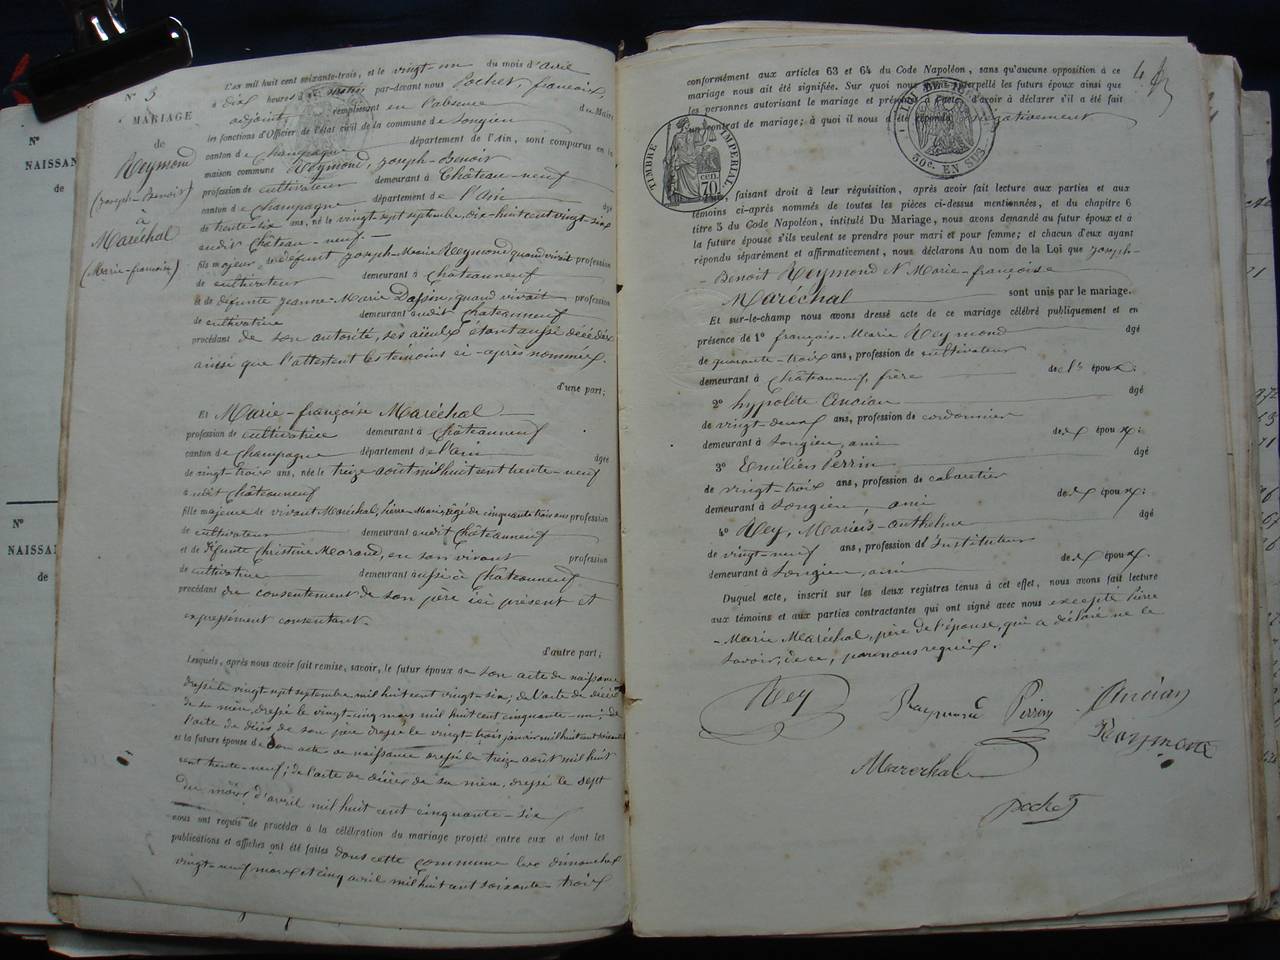 N° 3
MARIAGE
de
Reymond
(Joseph-Benoit)
à
Maréchal
(Marie-françoise)
L'an mil huit cent soixante-trois, et le vingt-un du mois d'avril
à dix heures du matin par-devant nous Pochet, françois,
adjoint, remplissant en l'absence du Maire
les fonctions d'Officier de l'état civil de la commune de Songieu
canton de Champagne département de l'Ain, sont comparus en la
maison commune Reymond, Joseph-Benoit
profession de cultivateur demeurant à Château-neuf
canton de Champagne département de l'Ain âgé
de trente-six ans, né le vingt sept septembre, dix-huit cent vingt-six
audit Château-neuf
fils majeur de défunt Joseph-Marie Reymond quand vivait profession
de cultivateur demeurant à Châteauneuf
et de défunte Jeanne-Marie quand vivait profession
de cultivatrice demeurant audit Châteauneuf
procédant de son autorité, ses aïeuls étant aussi décédés
ainsi que l'attestent les témoins ci-après nommés.
d'une part;
Et Marie-françoise Maréchal
profession de cultivatrice demeurant à Châteauneuf
canton de Champagne département de l'ain âgée
de vingt-trois ans, née le treize août mil huit cent trente-neuf
audit Châteauneuf
fille majeure de vivant Maréchal, Pierre-Marie, âgé de cinquante trois ans profession
de cultivateur demeurant audit Châteauneuf
et de défunte Christine Morand, en son vivant profession
de cultivatrice demeurant aussi à Châteauneuf
procédant du consentement de son père ici présent et
expressément consentant.
d'autre part;
Lesquels, après nous avoir fait remise, savoir, le futur époux de son acte de naissance
dressé le vingt sept septembre mil huit cent vingt-six; de l'acte de décès
de sa mère, dressé le vingt-cinq mars mil huit cent cinquante-un; de
l'acte de décès de son père dressé le vingt-trois janvier mil huit cent
et la future épouse de son acte de naissance dressé le treize août mil huit
cent trente-neuf; de l'acte de décès de sa mère, dressé le sept
du mois d'avril mil huit cent cinquante-six
nous ont requis de procéder à la célébration du mariage projeté entre eux et dont les
publications et affiches ont été faites dans cette commune les dimanches
vingt-neuf mars et cinq avril mil huit cent soixante-trois
conformément aux articles 63 et 64 du Code Napoléon, sans qu'aucune opposition à ce
mariage nous ait été signifiée. Sur quoi nous interpellé les futurs époux ainsi que
les personnes autorisant le mariage et présentes à l'acte d'avoir à déclarer s'il a été fait
un contrat de mariage; à quoi il nous a été répondu négativement
TIMBRE IMPÉRIAL
CEN. 70
50c. EN SUS
faisant droit à leur réquisition, après avoir fait lecture aux parties et aux
témoins ci-après nommés de toutes les pièces ci-dessus mentionnées, et du chapitre 6
titre 5 du Code Napoléon, intitulé Du Mariage, nous avons demandé au futur époux et à
la future épouse s'ils veulent se prendre pour mari et pour femme; et chacun d'eux ayant
répondu séparément et affirmativement, nous déclarons Au nom de la Loi que Joseph-
-Benoit Reymond et Marie-françoise
Maréchal sont unis par le mariage.
Et sur-le-champ nous avons dressé acte de ce mariage célébré publiquement et en
présence de 1° françois-Marie Reymond âgé
de quarante-trois ans, profession de cultivateur
demeurant à Châteauneuf, frère de l' époux;
2° hypolite Ancian âgé
de vingt-deux ans, profession de cordonnier
demeurant à Songieu, ami des époux;
3° Emilien Perrin âgé
de vingt-trois ans, profession de cabaretier
demeurant à Songieu, ami des époux;
4° Rey, Marius-anthelme âgé
de vingt-neuf ans, profession d'Instituteur
demeurant à Songieu, ami des époux.
Duquel acte, inscrit sur les deux registres tenus à cet effet, nous avons fait lecture
aux témoins et aux parties contractantes qui ont signé avec nous excepté Pierre
-Marie Maréchal, père de l'épouse, qui a déclaré ne le
savoir, de ce, par nous requis.
Rey Raymond Perrin Ancian
Raymond
Marechal
pochet
N°
NAISSAN
de
N°
NAISSAN
de